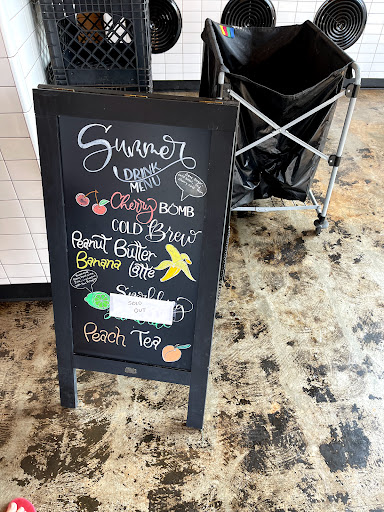 Summer
DRINK
MENU
Cherry BOMB
COLD Brew
Peanut Butter
Banana Latte
Sparkling
SOLD
OUT
Peach Tea